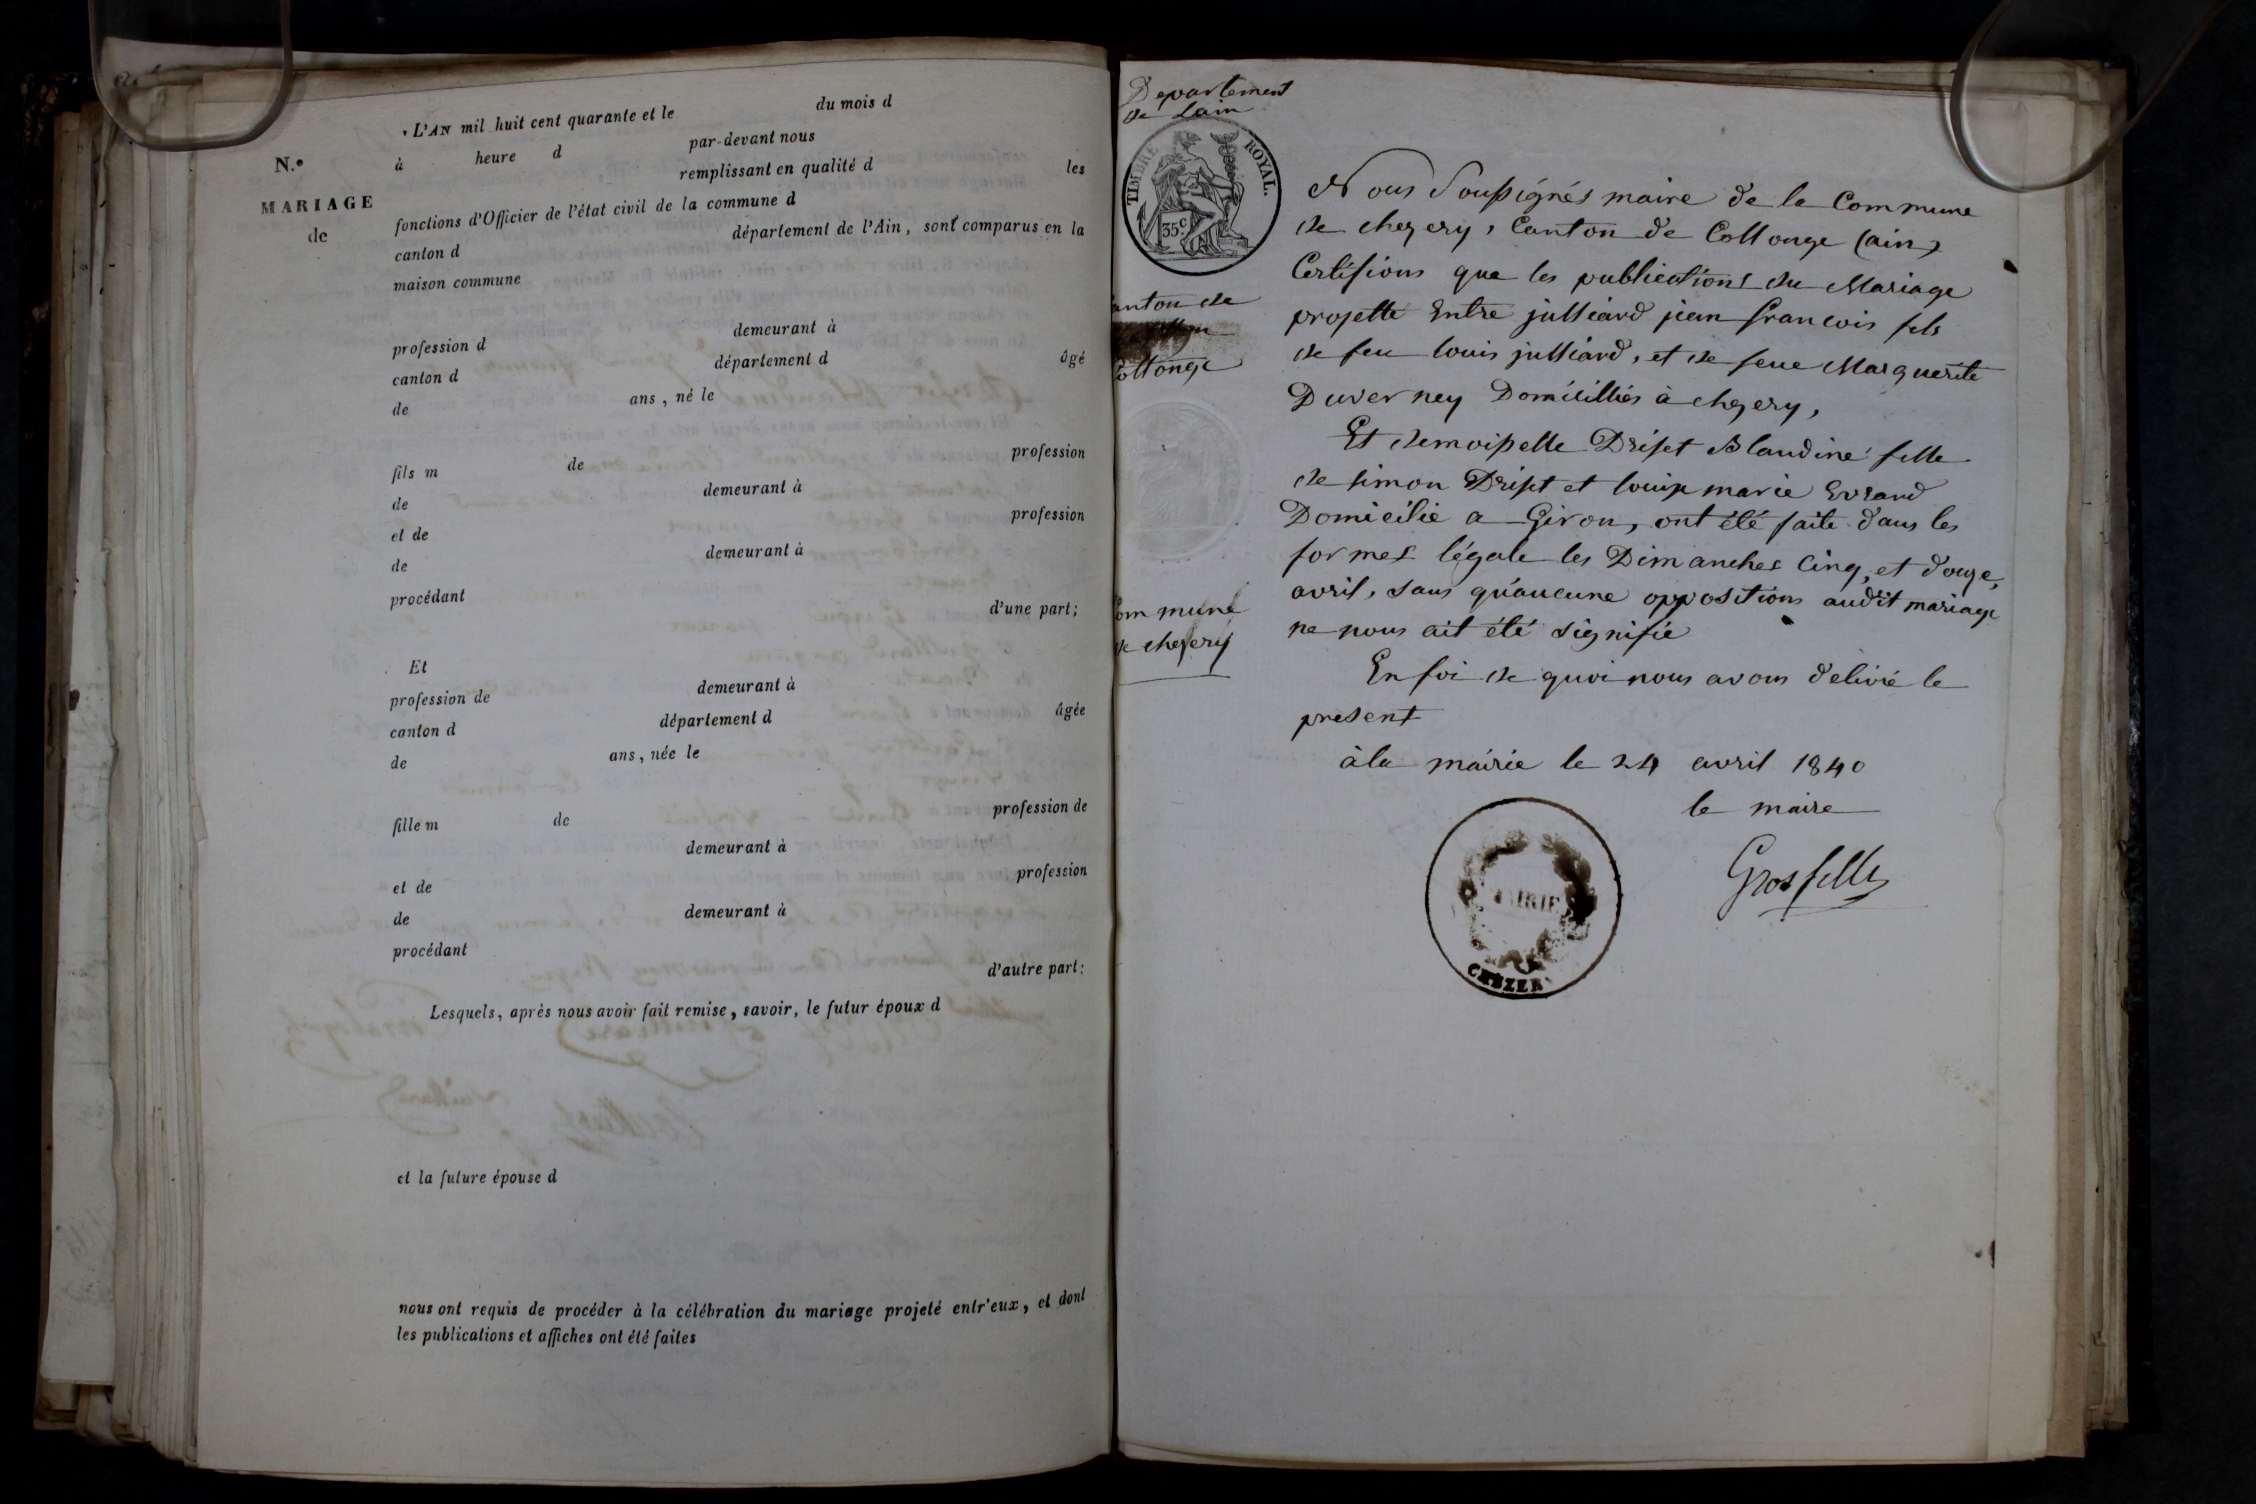 L'AN mil huit cent quarante et le du mois d
N.º à heure d par-devant nous
remplissant en qualité d les
MARIAGE
de
fonctions d'Officier de l'état civil de la commune d
canton d département de l'Ain, sont comparus en la
maison commune
profession d demeurant à
canton d département d âgé
de ans, né le
fils m de profession
de demeurant à
et de profession
de demeurant à
procédant
d'une part;
Et
profession de demeurant à
canton d département d âgée
de ans, née le
fille m de profession de
demeurant à
et de profession
de demeurant à
procédant
d'autre part:
Lesquels, après nous avoir fait remise, savoir, le futur époux d
et la future épouse d
nous ont requis de procéder à la célébration du mariage projeté entr'eux, et dont
les publications et affiches ont été faites
Departement
de Lain
TIMBRE ROYAL.
35c
anton de
Collonge
om mune
de chezery
Nous Soussignés maire de la Commune
de chezery, Canton de Collonge (ain)
Certifions que les publications du Mariage
projette Entre julliard jean francois fils
de feu louis julliard, et de feue Marguerite
Duverney Domicilliés à chezery,
Et demoisselle Driset Blandine fille
de simon Driset et louise marie Evrard
Domicilié a Giron, ont été faite dans les
formes légale les Dimanches Cinq, et douze,
avril, sans qu'aucune oppositions audit mariage
ne nous ait été signifié
En foi de quoi nous avons délivré le
present
à la mairie le 24 avril 1840
le maire
Grosfilley
MAIRIE
CHEZERY